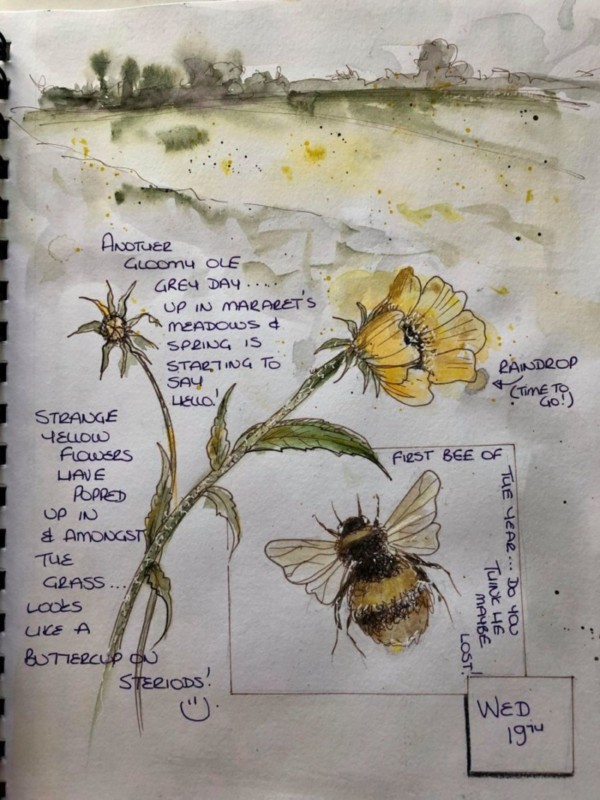 ANOTHER
GLOOMY OLE
GREY DAY.....
UP IN MARARET'S
MEADOWS &
SPRING IS
STARTING TO
SAY
HELLO!
RAINDROP
(TIME TO
GO!)
STRANGE
YELLOW
FLOWERS
HAVE
POPPED
UP IN
& AMONGST
THE
GRASS...
LOOKS
LIKE A
BUTTERCUP ON
STERIODS!
FIRST BEE OF
THE YEAR... DO YOU
THINK HE
MAYBE
LOST!
WED
19TH